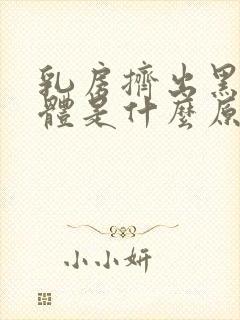 乳房擠出黑
體是什麼原
小小妍